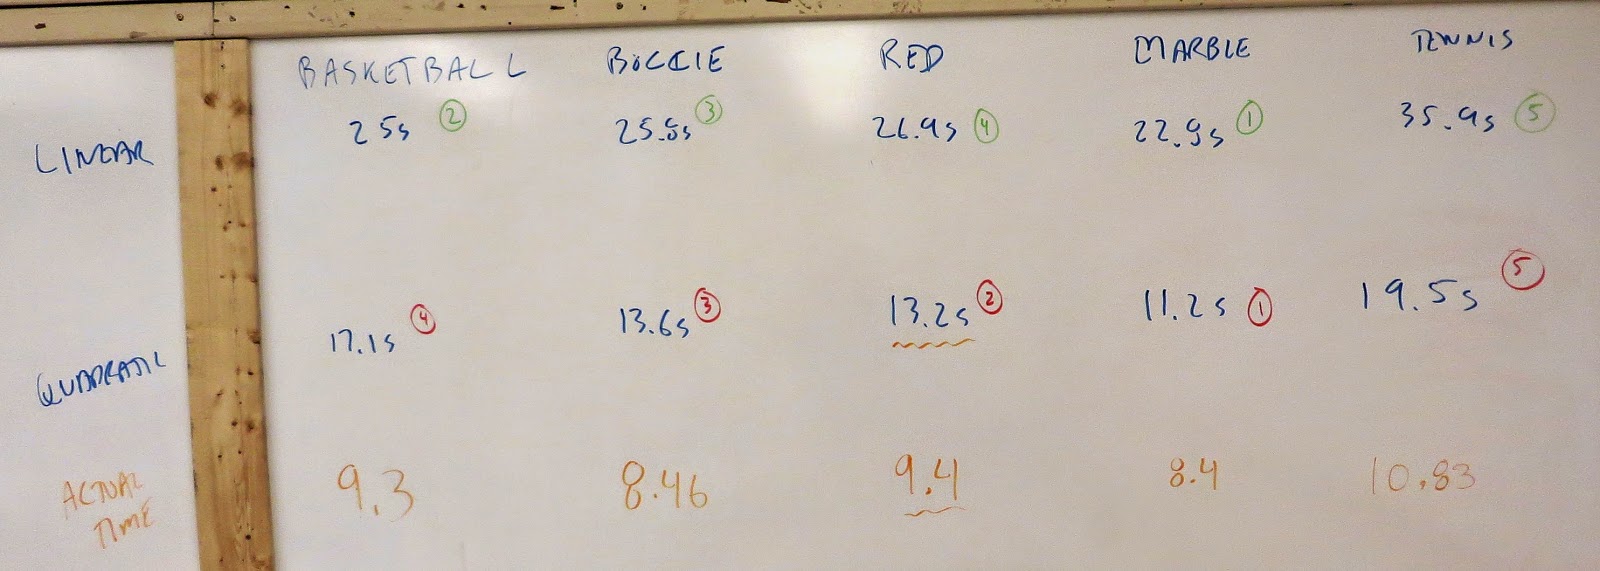 BASKETBALL BOCCIE RED MARBLE TENNIS
LINEAR 25s 2 25.8s 3 26.9s 4 22.9s 1 35.9s 5
QUADRATIC 17.1s 4 13.6s 3 13.2s 2 11.2s 1 19.5s 5
ACTUAL 9.3 8.46 9.4 8.4 10.83
TIME